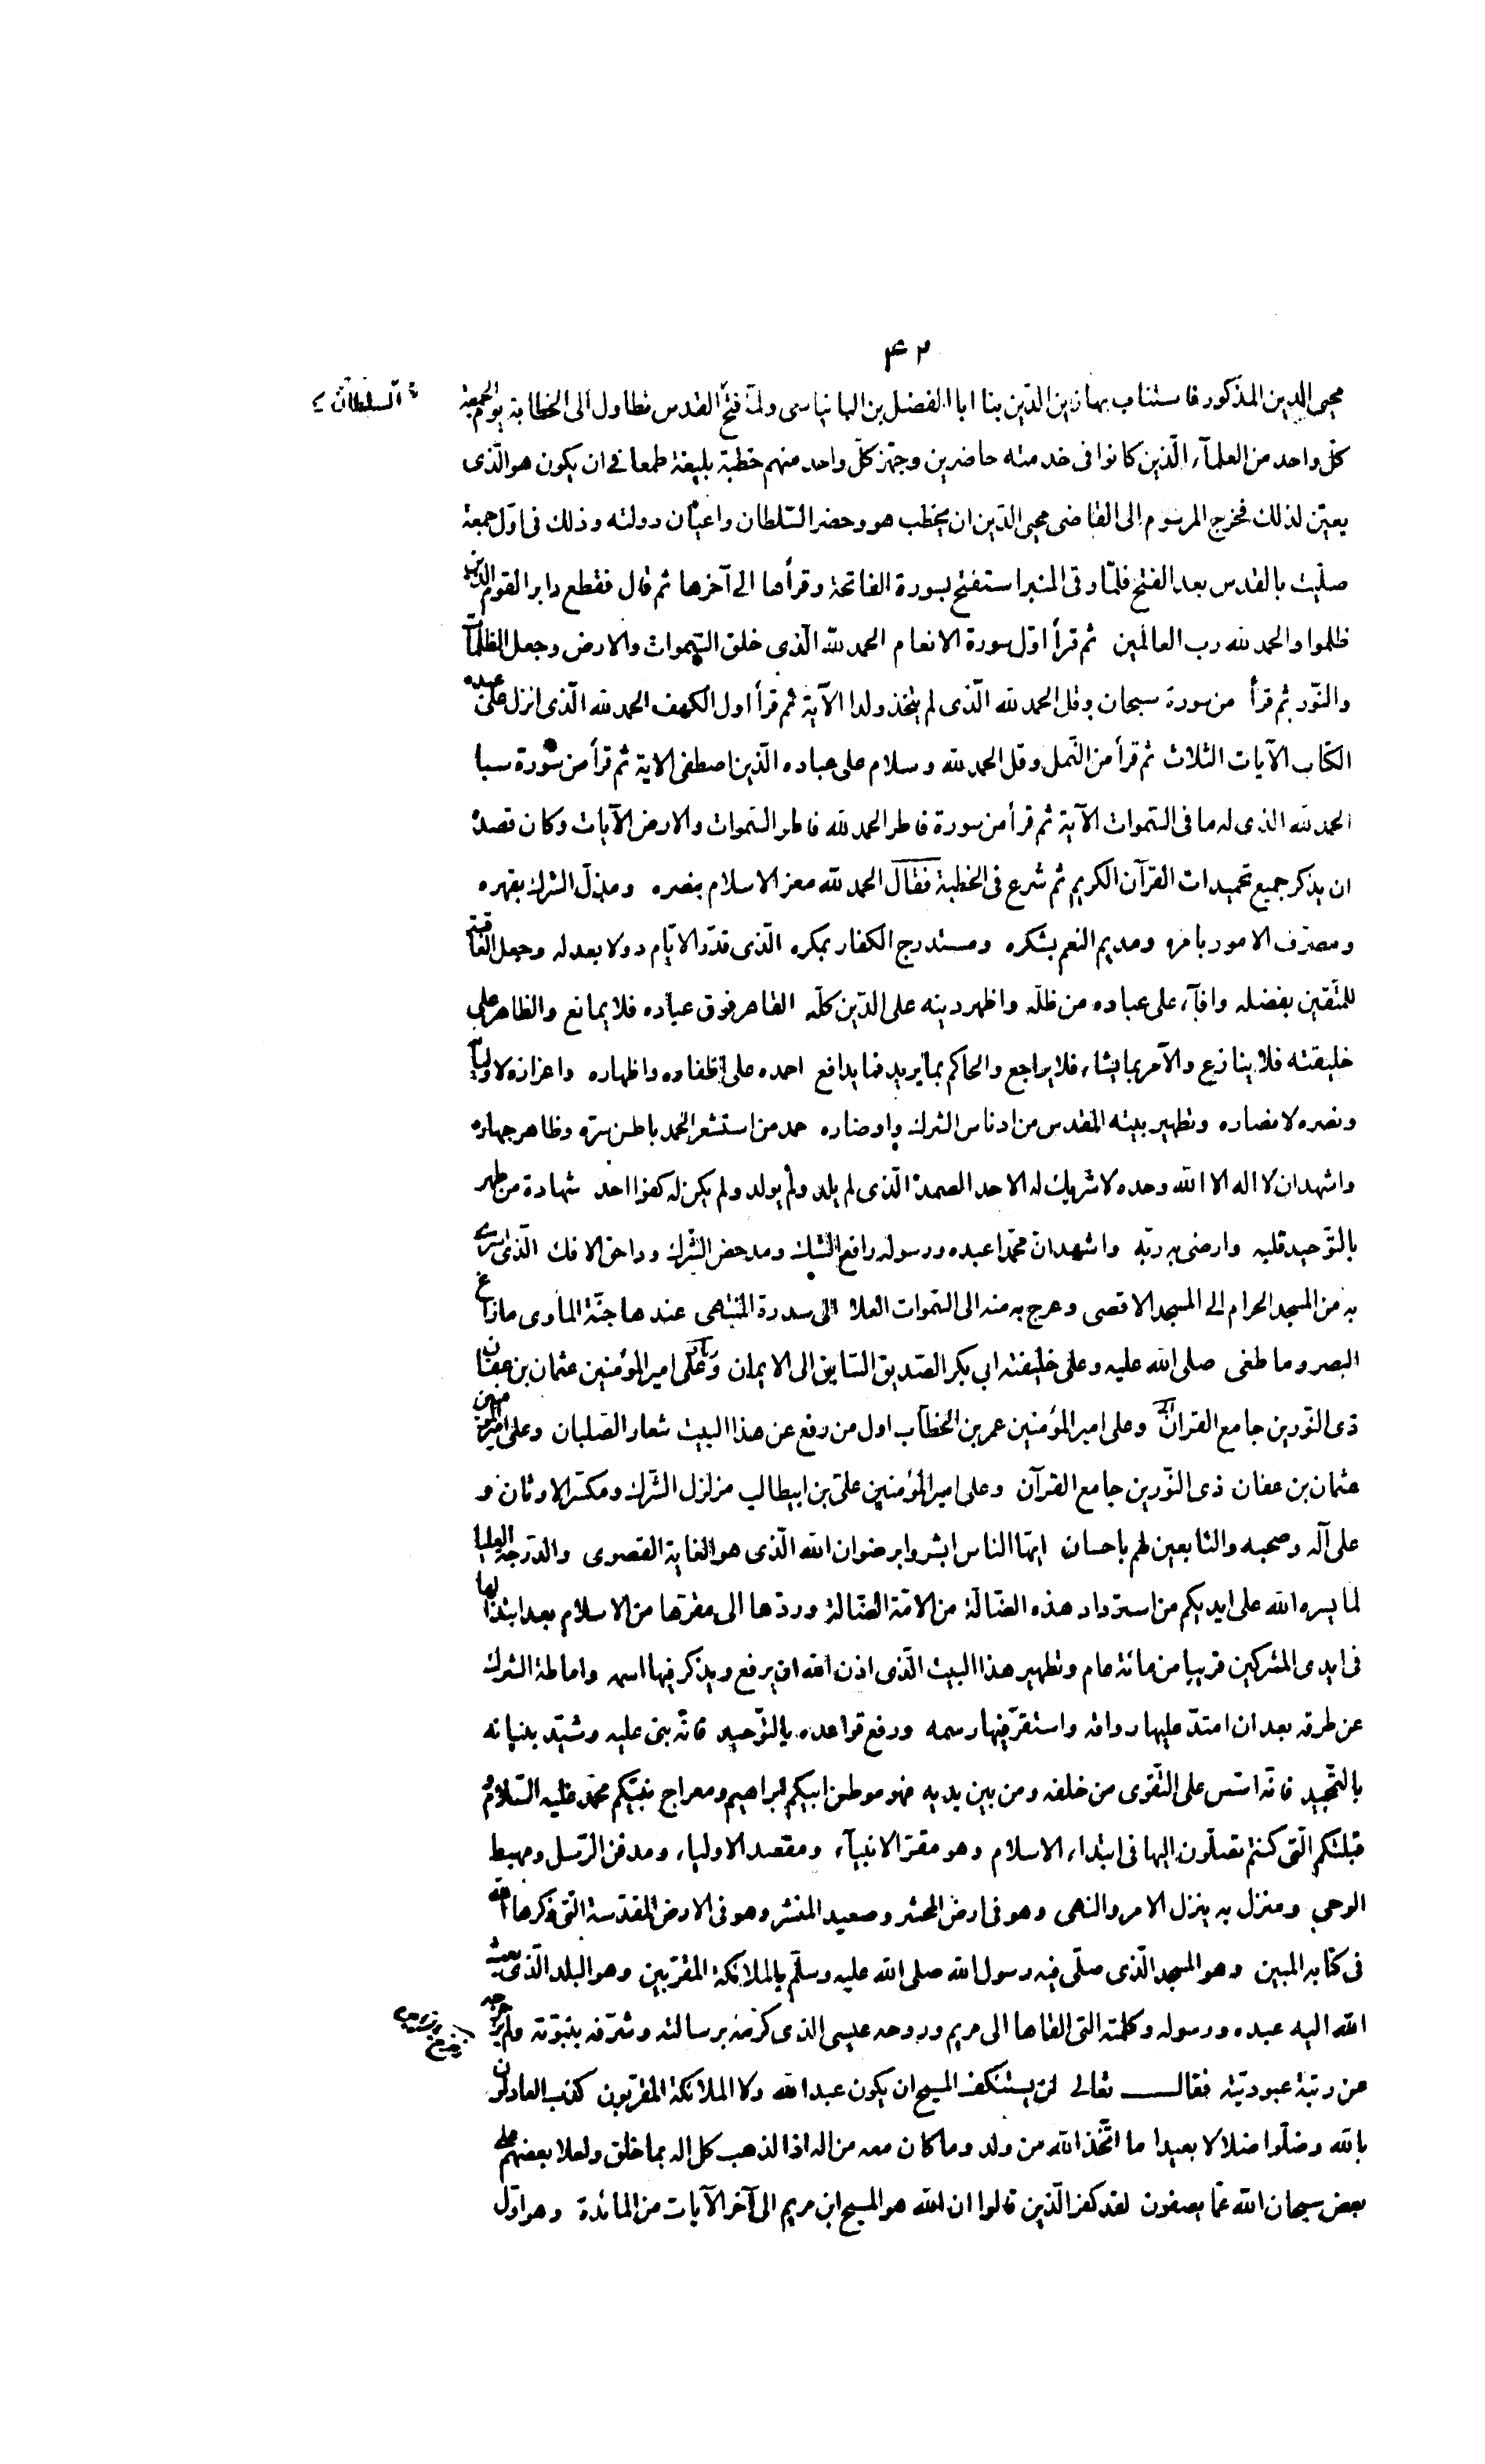 ٤٢
محيى الدين المذكور فاستناب بها زين الدين بنا ابا الفضل بن البانياسى ولمّا فتح القدس تطاول الى الخطابة يوم الجمعة
السلطان
كلّ واحد من العلمآء الّذين كانوا فى خدمته حاضرين وجهّز كلّ واحد منهم خطبة بليغة طمعا فى ان يكون هو الّذى
يعيّن لذلك فخرج المرسوم الى القاضى محيى الدّين ان يخطب هو وحضر السّلطان واعيان دولته وذلك فى اوّل جمعة
صلّيت بالقدس بعد الفتح فلمّا رقى المنبر استفتح بسورة الفاتحة وقرأها الى آخرها ثم قال فقطع دابر القوم الذين
ظلموا والحمد لله رب العالمين ثم قرأ اوّل سورة الانعام الحمد لله الّذى خلق السّموات والارض وجعل الظلمات
والنّور ثم قرأ من سورة سبحان وقل الحمد لله الّذى لم يتخذ ولدا الآية ثم قرأ اول الكهف الحمد لله الّذى انزل على عبده
الكتاب الآيات الثلاث ثم قرأ من النّمل وقل الحمد لله وسلام على عباده الّذين اصطفى الاية ثم قرأ من سورة سبا
الحمد لله الذى له ما فى السّموات الآية ثم قرأ من سورة فاطر الحمد لله فاطر السّموات والارض الآيات وكان قصده
ان يذكر جميع تحميدات القرآن الكريم ثم شرع فى الخطبة فقال الحمد لله معز الاسلام بنصره ومذلّ الشرك بقهره
ومصرّف الامور بامره ومديم النعم بشكره ومستدرج الكفار بمكره الّذى قدّر الايّام دولا بعدله وجعل العاقبة
للمتّقين بفضله وافآء على عباده من ظلّه واظهر دينه على الدّين كلّه القاهر فوق عباده فلا يمانع والظاهر على
خليقته فلا ينازع والآمر بما يشاء فلا يراجع والحاكم بما يريد فما يدافع احمده على اظفاره واظهاره واعزازه لاوليآ
ونصره لانصاره وتطهير بيته المقدس من ادناس الشرك واوضاره حمد من استشعر الحمد باطن سرّه وظاهر جهاره
واشهد ان لا اله الا الله وحده لا شريك له الاحد الصمد الّذى لم يلد ولم يولد ولم يكن له كفوا احد شهادة من طهر
بالتوّحيد قلبه وارضى به ربّه واشهد انّ محمّدا عبده ورسوله رافع الشك ومدحض الشّرك وداحق الافك الّذى اسرى
به من المسجد الحرام الى المسجد الاقصى وعرج به منه الى السّموات العلا الى سدرة المنتهى عندها جنّة المأوى مازاغ
البصر وما طغى صلى الله عليه وعلى خليفته ابى بكر الصّديق السّابق الى الايمان وعلى امير المؤمنين عثمان بن عفان
ذى النّورين جامع القران وعلى امير المؤمنين عمر بن الخطاب اول من رفع عن هذا البيت شعار الصّلبان وعلى امير المؤمنين
عثمان بن عفان ذى النّورين جامع القرآن وعلى امير المؤمنين علىّ بن ابيطالب مزلزل الشّرك ومكسّر الاوثان و
على آله وصحبه والتابعين لهم باحسان ايّها الناس ابشروا برضوان الله الّذى هو الغاية القصوى والدّرجة العليا
لما يسره الله على ايديكم من استرداد هذه الضّالّة من الامّة الضّالة وردّها الى مقرّها من الاسلام بعد ابتذالها
فى ايدى المشركين قريبا من مائة عام وتطهير هذا البيت الّذى اذن الله ان يرفع ويذكر فيها اسمه واماطة الشرك
عن طرقه بعد ان امتدّ عليها رواقه واستقرّ فيها رسمه ورفع قواعده بالتوّحيد فانّه بنى عليه وشيّد بنيانه
بالتّمجيد فانّه اسّس على التّقوى من خلفه ومن بين يديه فهو موطن ابيكم ابراهيم ومعراج نبيّكم محمّد عليه السّلام و
قبلتكم الّتى كنتم تصلّون اليها فى ابتداء الاسلام وهو مقرّ الانبيآء ومقصد الاولياء ومدفن الرّسل ومهبط
الوحى ومنزل به ينزل الامر والنهى وهو فى ارض المحشر وصعيد المنشر وهو فى الارض المقدّسة الّتى ذكرها الله
فى كتابه المبين وهو المسجد الّذى صلّى فيه رسول الله صلى الله عليه وسلّم بالملائكة المقرّبين وهو البلد الّذى بعث
الله اليه عبده ورسوله وكلمته التى القاها الى مريم وروحه عيسى الذى كرّمه برسالته وشرّفه بنبوّته ولم يزحزحه
عن رتبة عبوديّته فقال تعالى لن يستنكف المسيح ان يكون عبدا لله ولا الملائكة المقرّبون كذب العادلون
بالله وضلّوا ضلالا بعيدا ما اتّخذ الله من ولد وما كان معه من اله اذا لذهب كل اله بما خلق ولعلا بعضهم على
بعض سبحان الله عمّا يصفون لقد كفر الّذين قالوا ان الله هو المسيح ابن مريم الى آخر الآيات من المائدة وهو اوّل